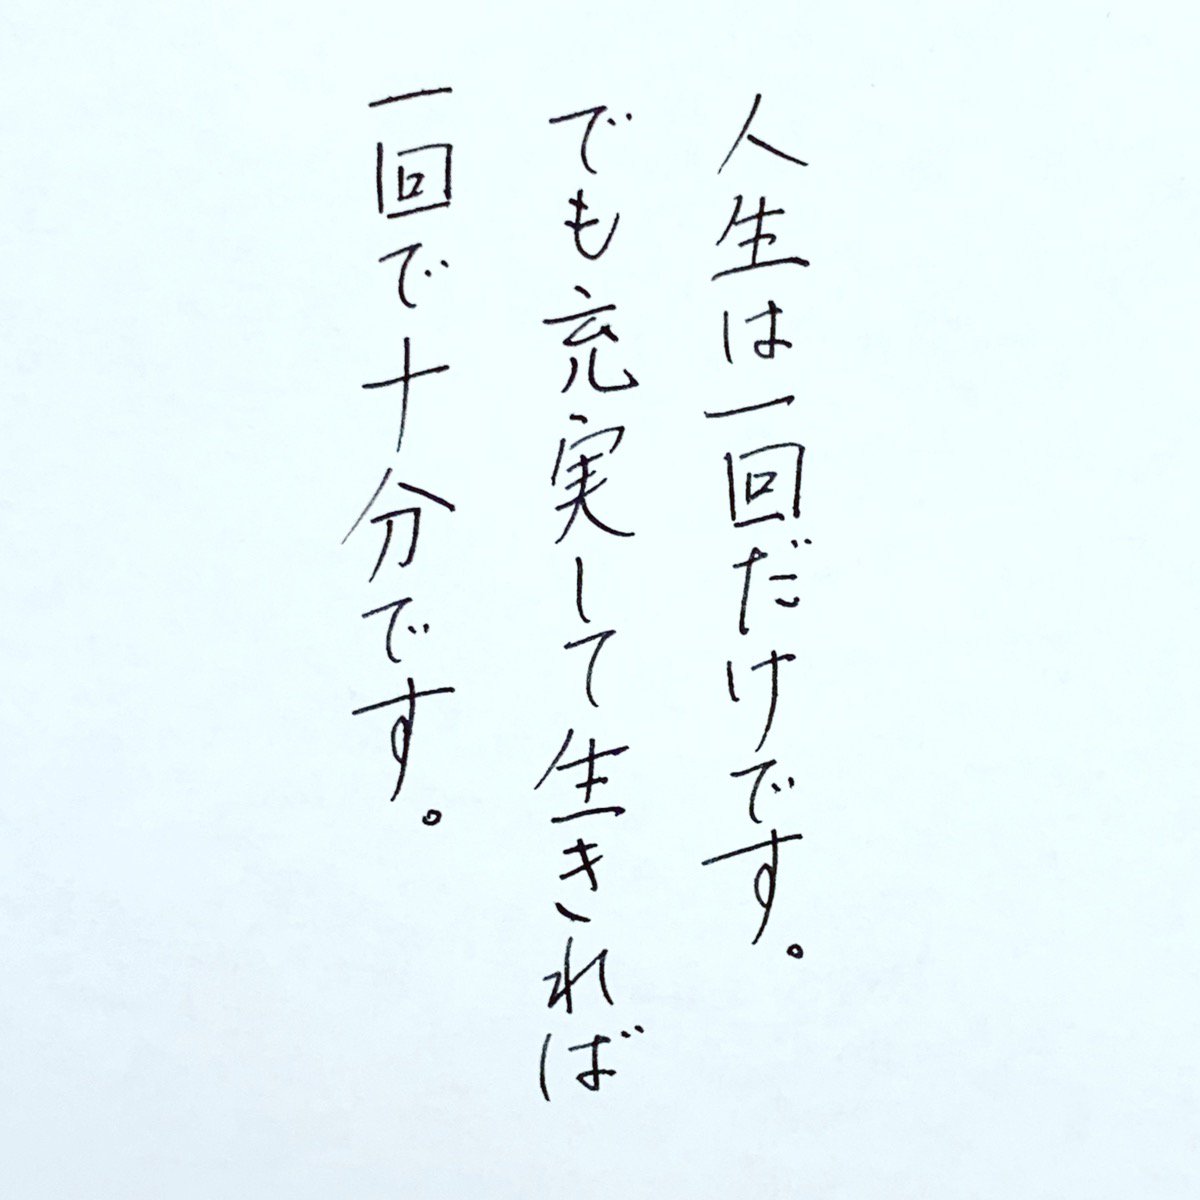 人生は一回だけです。
でも充実して生きれば
一回で十分です。